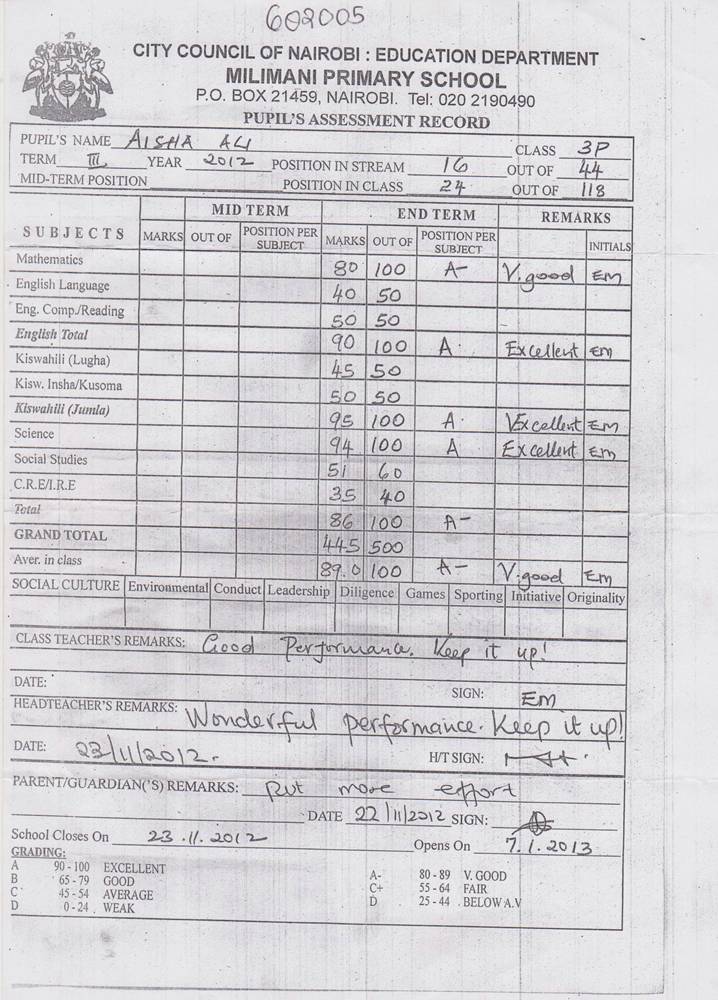 602005
CITY COUNCIL OF NAIROBI : EDUCATION DEPARTMENT
MILIMANI PRIMARY SCHOOL
P.O. BOX 21459, NAIROBI. Tel: 020 2190490
PUPIL'S ASSESSMENT RECORD
PUPIL'S NAME AISHA ALI CLASS 3P
TERM III YEAR 2012 POSITION IN STREAM 16 OUT OF 44
MID-TERM POSITION POSITION IN CLASS 24 OUT OF 118
MID TERM END TERM REMARKS
SUBJECTS MARKS OUT OF POSITION PER SUBJECT MARKS OUT OF POSITION PER SUBJECT INITIALS
Mathematics 80 100 A- V.good EM
English Language 40 50
Eng. Comp./Reading 50 50
English Total 90 100 A Excellent EM
Kiswahili (Lugha) 45 50
Kisw. Insha/Kusoma 50 50
Kiswahili (Jumla) 95 100 A Excellent EM
Science 94 100 A Excellent EM
Social Studies 51 60
C.R.E/I.R.E 35 40
Total 86 100 A-
GRAND TOTAL 445 500
Aver. in class 89.0 100 A- V.good EM
SOCIAL CULTURE Environmental Conduct Leadership Diligence Games Sporting Initiative Originality
CLASS TEACHER'S REMARKS: Good Performance. Keep it up!
DATE: SIGN: EM
HEADTEACHER'S REMARKS: Wonderful performance. Keep it up!
DATE: 23/11/2012. H/T SIGN:
PARENT/GUARDIAN('S) REMARKS: Put more effort
DATE 22/11/2012 SIGN:
School Closes On 23.11.2012 Opens On 7.1.2013
GRADING:
A 90-100 EXCELLENT A- 80-89 V. GOOD
B 65-79 GOOD C+ 55-64 FAIR
C 45-54 AVERAGE D 25-44 BELOW A.V
D 0-24 WEAK